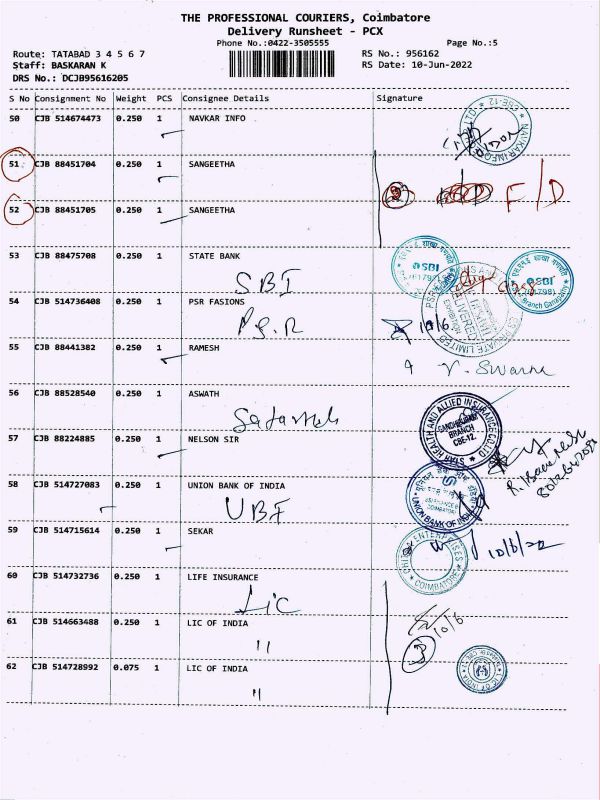 THE PROFESSIONAL COURIERS, Coimbatore
Delivery Runsheet - PCX
Phone No.:0422-3505555 Page No.:5
Route: TATABAD 3 4 5 6 7 RS No.: 956162
Staff: BASKARAN K RS Date: 10-Jun-2022
DRS No.: DCJB95616205
S No Consignment No Weight PCS Consignee Details Signature
50 CJB 514674473 0.250 1 NAVKAR INFO
NAVKAR INFO CBE-12
51 CJB 88451704 0.250 1 SANGEETHA
F/D
52 CJB 88451705 0.250 1 SANGEETHA
53 CJB 88475708 0.250 1 STATE BANK
SBI
SBI SBI
Branch Ganapathy
54 CJB 514736408 0.250 1 PSR FASIONS
P.S.R
10/6
DELIVERED
55 CJB 88441382 0.250 1 RAMESH
V. Swarna
56 CJB 88528540 0.250 1 ASWATH
STAR HEALTH AND ALLIED INSURANCE CO.LTD
BRANCH
CBE-12.
57 CJB 88224885 0.250 1 NELSON SIR
58 CJB 514727083 0.250 1 UNION BANK OF INDIA
UBI
UNION BANK OF INDIA
59 CJB 514715614 0.250 1 SEKAR
ENTERPRISES
COIMBATORE
10/6/22
60 CJB 514732736 0.250 1 LIFE INSURANCE
LIC
61 CJB 514663488 0.250 1 LIC OF INDIA
"
10/6
62 CJB 514728992 0.075 1 LIC OF INDIA
"